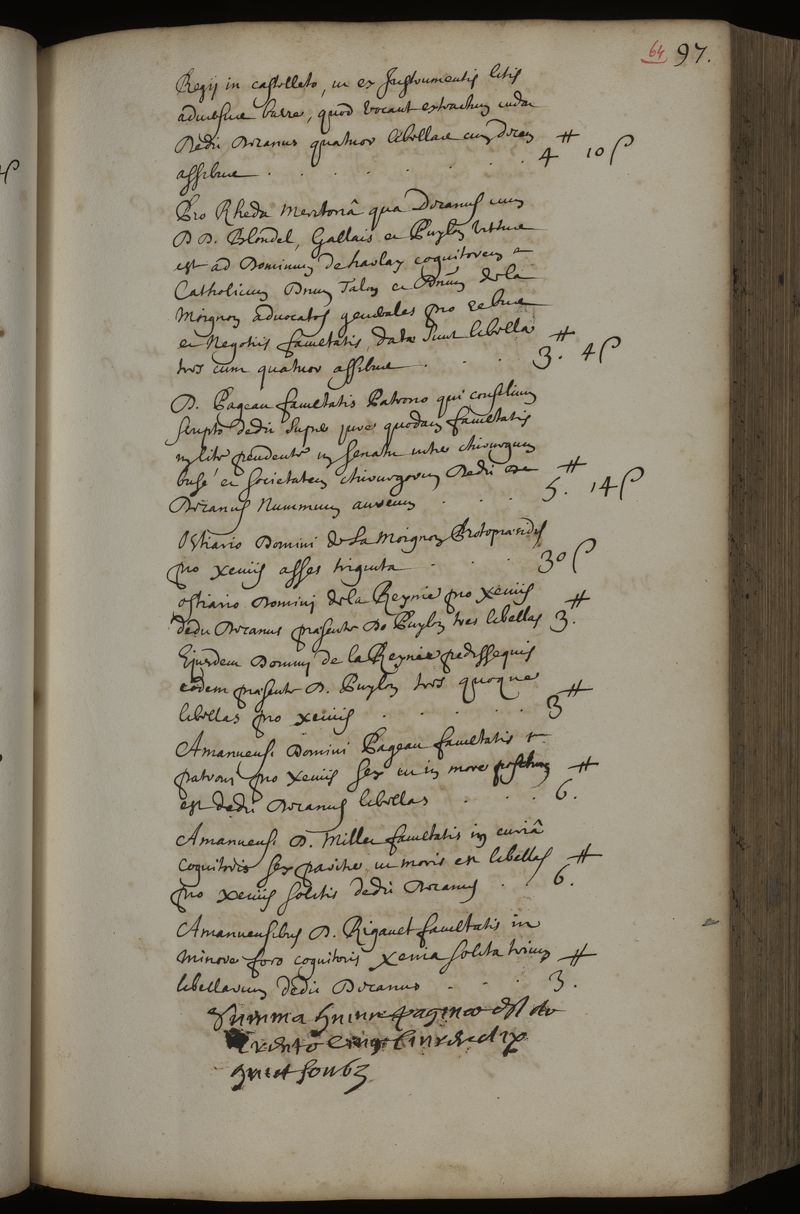 64 97.
Regij in castelleto, ut ex Instrumentis litis
adversae barre, quod vocant extractum
Dedit Decanus quatuor libellae cum decem
assibus . . . . . . . 4 ₶ 10 ſ
Pro Rheda Meritoriâ qua Decanus cum
D D. Blondel, Gallais et Puylon
est ad Dominum de harlay cognitorem
Catholicum Dnum Talon et Dnum de la
Moignon advocatos generales pro rebus
et Negotiis facultatis, datae sunt libellae
tres cum quatuor assibus . . . . 3 ₶. 4 ſ
D. Pageau facultatis Patrono qui consilium
scripto dedit super quodam facultatis
in lite pendente in senatu inter chirurgum
et societatem chirurgorum Dedit
Decanus Nummum aureum . . . 5 ₶. 14 ſ
Ostiario Domini de La Moignon Protopraesidis
pro xeniis asses triginta . . . . 30 ſ
ostiario Domini de la Reynie pro xeniis
dedit Decanus praesente Do Puylon tres libellas 3 ₶.
Ejusdem Domini de la Reynie pedissequis
eodem praesente D. Puylon tres quoque
libellas pro xeniis . . . . . 3 ₶
Amanuensi Domini Pageau facultatis
patroni pro xeniis sex ut in more positum
est dedit Decanus libellas . . . 6 ₶.
Amanuensi D. Millet facultatis in curiâ
cognitoris sex pariter ut moris est libellas
pro xeniis solitis dedit Decanus . . 6 ₶.
Amanuensibus D. Rigault facultatis in
Minore foro cognitoris xenia solita trium
libellarum dedit Decanus . . . 3 ₶.
Summa huius paginae est de
trente cinq livres dix
huict soubz